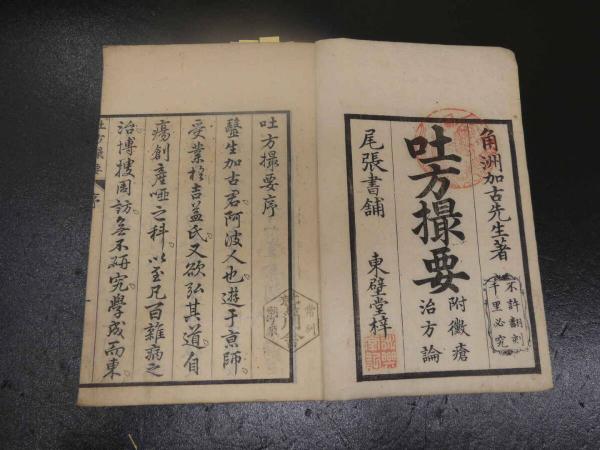 角洲加古先生著
不許翻刻
千里必究
吐方撮要
附黴瘡
治方論
尾張書舗
東壁堂梓
吐方撮要序
醫生加古君阿波人也遊于京師
受業於吉益氏又欲弘其道自
瘍創產啞之科以至凡百雜病之
治博搜周訪無不研究學成而東
吐方撮要
序